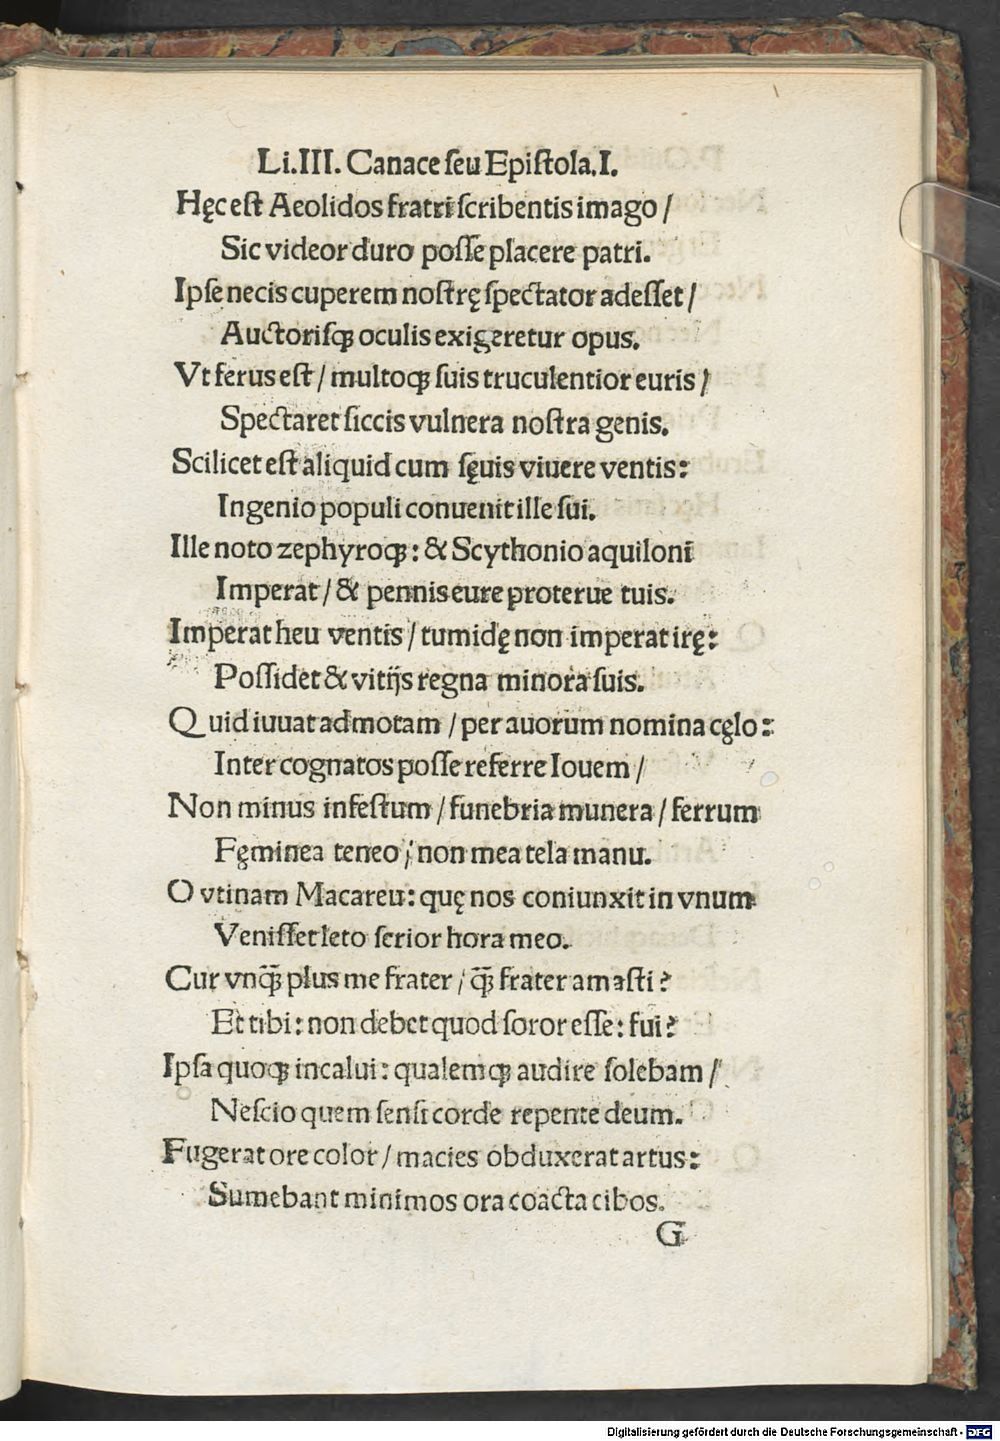 Li.III. Canace ſeu Epiſtola.I.
Hęc eſt Aeolidos fratri ſcribentis imago /
Sic videor duro poſſe placere patri.
Ipſe necis cuperem noſtrę ſpectator adeſſet /
Auctoriſqꝫ oculis exigeretur opus.
Vt ferus eſt / multoqꝫ ſuis truculentior euris /
Spectaret ſiccis vulnera noſtra genis.
Scilicet eſt aliquid cum ſęuis viuere ventis:
Ingenio populi conuenit ille ſui.
Ille noto zephyroqꝫ: & Scythonio aquiloni
Imperat / & pennis eure proterue tuis.
Imperat heu ventis / tumidę non imperat irę:
Poſſidet & vitijs regna minora ſuis.
Quid iuuat admotam / per auorum nomina cęlo:
Inter cognatos poſſe referre Iouem /
Non minus infeſtum / funebria munera / ferrum
Fęminea teneo / non mea tela manu.
O vtinam Macareu: quę nos coniunxit in vnum
Veniſſet leto ſerior hora meo.
Cur vnqꝫ̃ plus me frater / qꝫ̃ frater amaſti?
Et tibi: non debet quod ſoror eſſe: fui?
Ipſa quoqꝫ incalui: qualemqꝫ audire ſolebam /
Neſcio quem ſenſi corde repente deum.
Fugerat ore color / macies obduxerat artus:
Sumebant minimos ora coacta cibos.
G
Digitalisierung gefördert durch die Deutsche Forschungsgemeinschaft - DFG